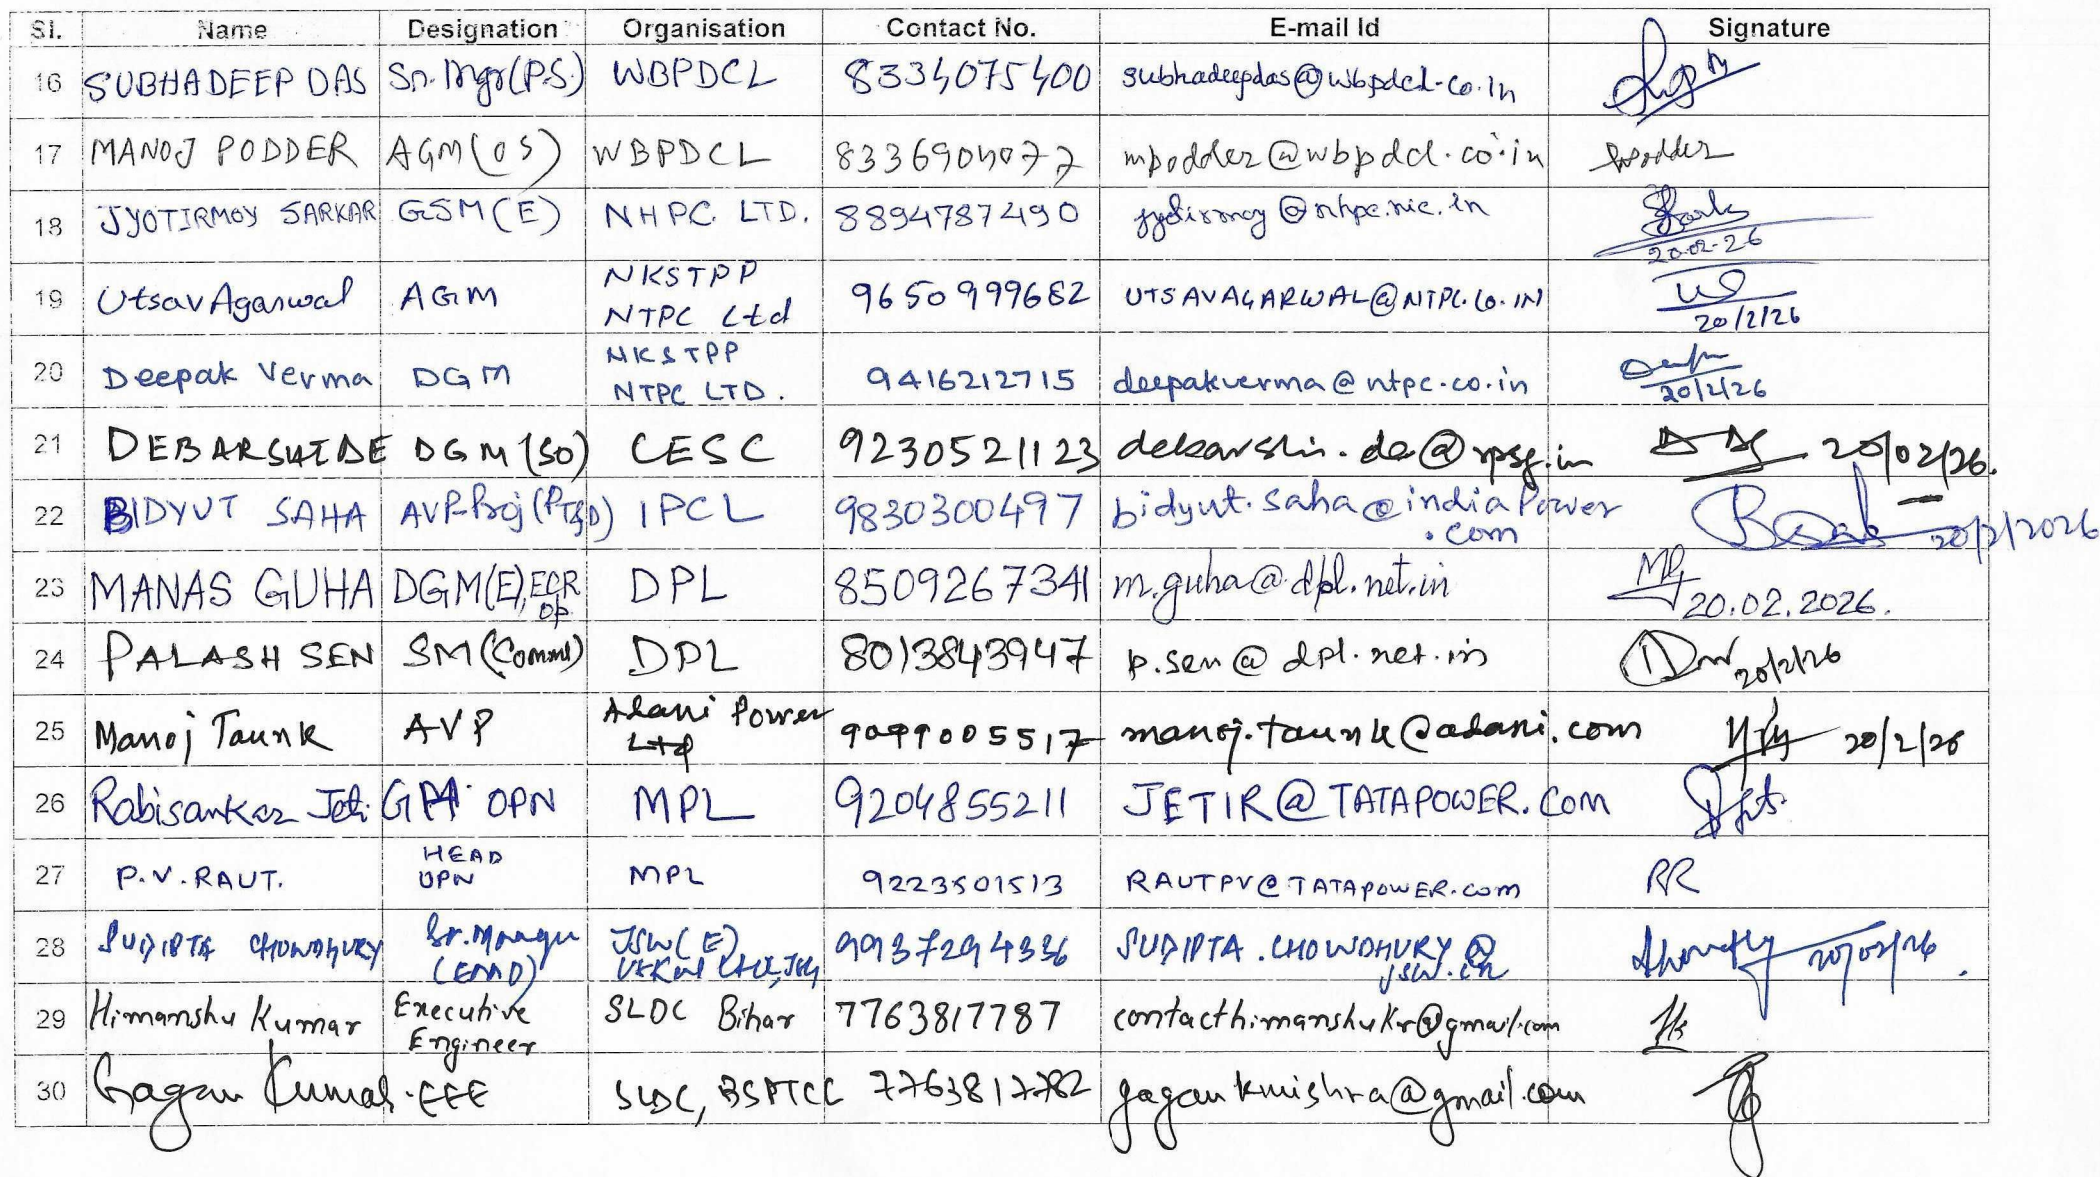 Sl. Name Designation Organisation Contact No. E-mail Id Signature
16 SUBHADEEP DAS Sn. Mgr (P.S.) WBPDCL 8334075400 subhadeepdas@wbpdcl.co.in
17 MANOJ PODDER AGM (OS) WBPDCL 8336904077 mpodder@wbpdcl.co.in Podder
18 JYOTIRMOY SARKAR GSM (E) NHPC LTD. 8894787490 jyotirmoy@nhpc.nic.in
20.02.26
19 Utsav Agarwal AGM NKSTPP
NTPC Ltd 9650999682 UTSAVAGARWAL@NTPC.CO.IN
20/2/26
20 Deepak Verma DGM NKSTPP
NTPC LTD. 9416212715 deepakverma@ntpc.co.in
20/2/26
21 DEBARSHI DE DGM (SO) CESC 9230521123 debarshi.de@rpsg.in 20/02/26.
22 BIDYUT SAHA AVP-Proj (PT&D) IPCL 9830300497 bidyut.saha@indiapower
.com 20/2/2026
23 MANAS GUHA DGM(E), ECR
OP. DPL 8509267341 m.guha@dpl.net.in MG
20.02.2026.
24 PALASH SEN SM (Comml) DPL 8013843947 p.sen@dpl.net.in 20/2/26
25 Manoj Taunk AVP Adani Power
Ltd 9099005517 manoj.taunk@adani.com 20/2/26
26 Rabisankar Jeti GM OPN MPL 9204855211 JETIR@TATAPOWER.COM
27 P.V. RAUT. HEAD
OPN MPL 9223501513 RAUTPV@TATAPOWER.COM RR
28 SUDIPTA CHOWDHURY Sr. Manager
(EMD) JSW (E)
Utkal Ltd, 9937294336 SUDIPTA.CHOWDHURY@
jsw.in 20/02/26.
29 Himanshu Kumar Executive
Engineer SLDC Bihar 7763817787 contacthimanshukr@gmail.com
30 Gagan Kumar EEE SLDC, BSPTCL 7763817782 gagankmishra@gmail.com